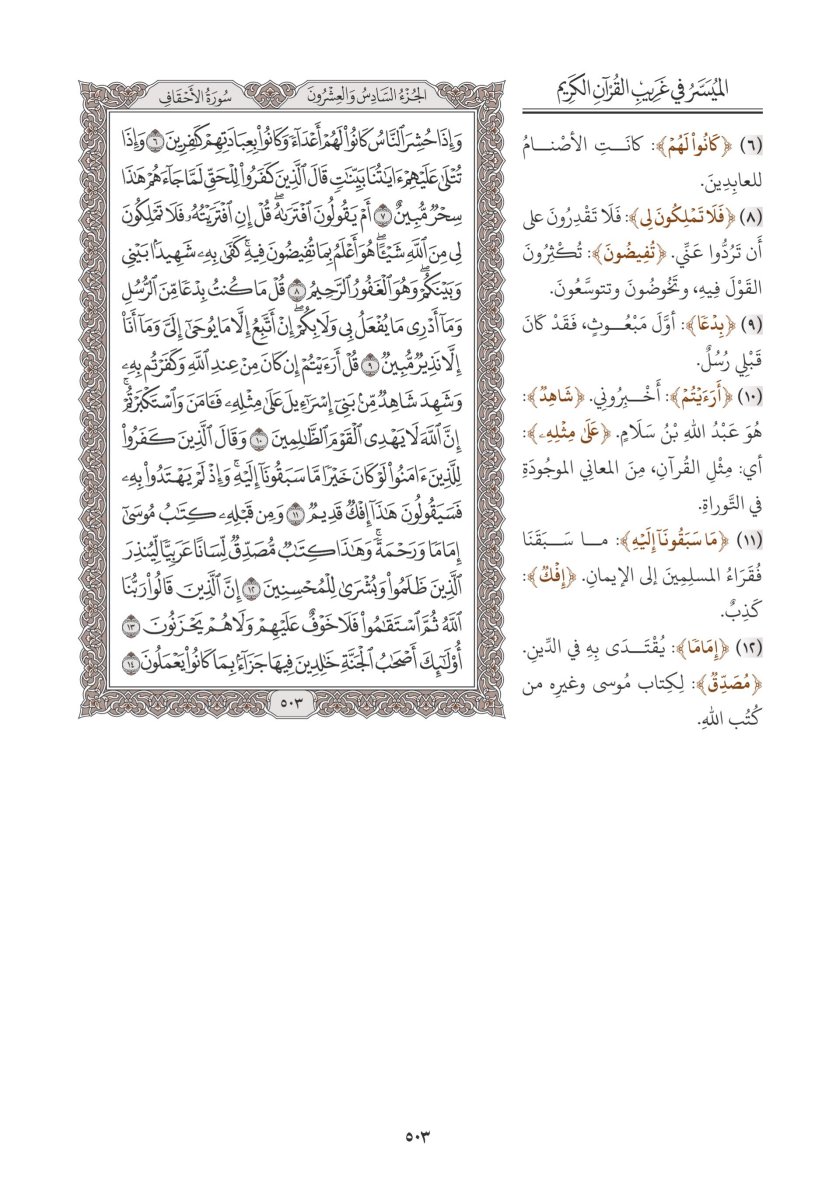 الميسر في غريب القرآن الكريم
(٦) ﴿كَانُوا۟ لَهُمْ﴾: كانَـــتِ الأصْنـــامُ
للعابِدِينَ.
(٨) ﴿فَلَا تَمْلِكُونَ لِى﴾: فَلَا تَقْدِرُونَ على
أَن تَرُدُّوا عَنِّي. ﴿تُفِيضُونَ﴾: تُكْثِرُونَ
القَوْلَ فِيهِ، وتَخُوضُونَ وتتوسَّعُونَ.
(٩) ﴿بِدْعًا﴾: أوَّلَ مَبْعُـــوثٍ، فَقَدْ كَانَ
قَبْلِي رُسُلٌ.
(١٠) ﴿أَرَءَيْتُمْ﴾: أَخْـــبِرُوني. ﴿شَاهِدٌ﴾:
هُوَ عَبْدُ اللهِ بْنُ سَلَامٍ. ﴿عَلَىٰ مِثْلِهِۦ﴾:
أي: مِثْلِ القُرآنِ، مِنَ المعاني الموجُودَةِ
في التَّوراةِ.
(١١) ﴿مَا سَبَقُونَآ إِلَيْهِ﴾: مـــا سَـــبَقَنَا
فُقَرَاءُ المسلِمِينَ إلى الإيمانِ. ﴿إِفْكٌ﴾:
كَذِبٌ.
(١٢) ﴿إِمَامًا﴾: يُقْتَـــدَى بِهِ في الدِّينِ.
﴿مُصَدِّقٌ﴾: لِكِتاب مُوسى وغيرِه من
كُتُب اللهِ.
الجُزْءُ السَّادِسُ وَالعِشْرُونَ
سُورَةُ الأَحْقَافِ
وَإِذَا حُشِرَ ٱلنَّاسُ كَانُوا۟ لَهُمْ أَعْدَآءً وَكَانُوا۟ بِعِبَادَتِهِمْ كَـٰفِرِينَ ٦ وَإِذَا
تُتْلَىٰ عَلَيْهِمْ ءَايَـٰتُنَا بَيِّنَـٰتٍ قَالَ ٱلَّذِينَ كَفَرُوا۟ لِلْحَقِّ لَمَّا جَآءَهُمْ هَـٰذَا
سِحْرٌ مُّبِينٌ ٧ أَمْ يَقُولُونَ ٱفْتَرَىٰهُ ۖ قُلْ إِنِ ٱفْتَرَيْتُهُۥ فَلَا تَمْلِكُونَ
لِى مِنَ ٱللَّهِ شَيْـًٔا ۖ هُوَ أَعْلَمُ بِمَا تُفِيضُونَ فِيهِ ۖ كَفَىٰ بِهِۦ شَهِيدًۢا بَيْنِى
وَبَيْنَكُمْ ۖ وَهُوَ ٱلْغَفُورُ ٱلرَّحِيمُ ٨ قُلْ مَا كُنتُ بِدْعًا مِّنَ ٱلرُّسُلِ
وَمَآ أَدْرِى مَا يُفْعَلُ بِى وَلَا بِكُمْ ۖ إِنْ أَتَّبِعُ إِلَّا مَا يُوحَىٰٓ إِلَىَّ وَمَآ أَنَا۠
إِلَّا نَذِيرٌ مُّبِينٌ ٩ قُلْ أَرَءَيْتُمْ إِن كَانَ مِنْ عِندِ ٱللَّهِ وَكَفَرْتُم بِهِۦ
وَشَهِدَ شَاهِدٌ مِّنۢ بَنِىٓ إِسْرَٰٓءِيلَ عَلَىٰ مِثْلِهِۦ فَـَٔامَنَ وَٱسْتَكْبَرْتُمْ ۖ
إِنَّ ٱللَّهَ لَا يَهْدِى ٱلْقَوْمَ ٱلظَّـٰلِمِينَ ١٠ وَقَالَ ٱلَّذِينَ كَفَرُوا۟
لِلَّذِينَ ءَامَنُوا۟ لَوْ كَانَ خَيْرًا مَّا سَبَقُونَآ إِلَيْهِ ۚ وَإِذْ لَمْ يَهْتَدُوا۟ بِهِۦ
فَسَيَقُولُونَ هَـٰذَآ إِفْكٌ قَدِيمٌ ١١ وَمِن قَبْلِهِۦ كِتَـٰبُ مُوسَىٰٓ
إِمَامًا وَرَحْمَةً ۚ وَهَـٰذَا كِتَـٰبٌ مُّصَدِّقٌ لِّسَانًا عَرَبِيًّا لِّيُنذِرَ
ٱلَّذِينَ ظَلَمُوا۟ وَبُشْرَىٰ لِلْمُحْسِنِينَ ١٢ إِنَّ ٱلَّذِينَ قَالُوا۟ رَبُّنَا
ٱللَّهُ ثُمَّ ٱسْتَقَـٰمُوا۟ فَلَا خَوْفٌ عَلَيْهِمْ وَلَا هُمْ يَحْزَنُونَ ١٣
أُو۟لَـٰٓئِكَ أَصْحَـٰبُ ٱلْجَنَّةِ خَـٰلِدِينَ فِيهَا جَزَآءًۢ بِمَا كَانُوا۟ يَعْمَلُونَ ١٤
٥٠٣
٥٠٣